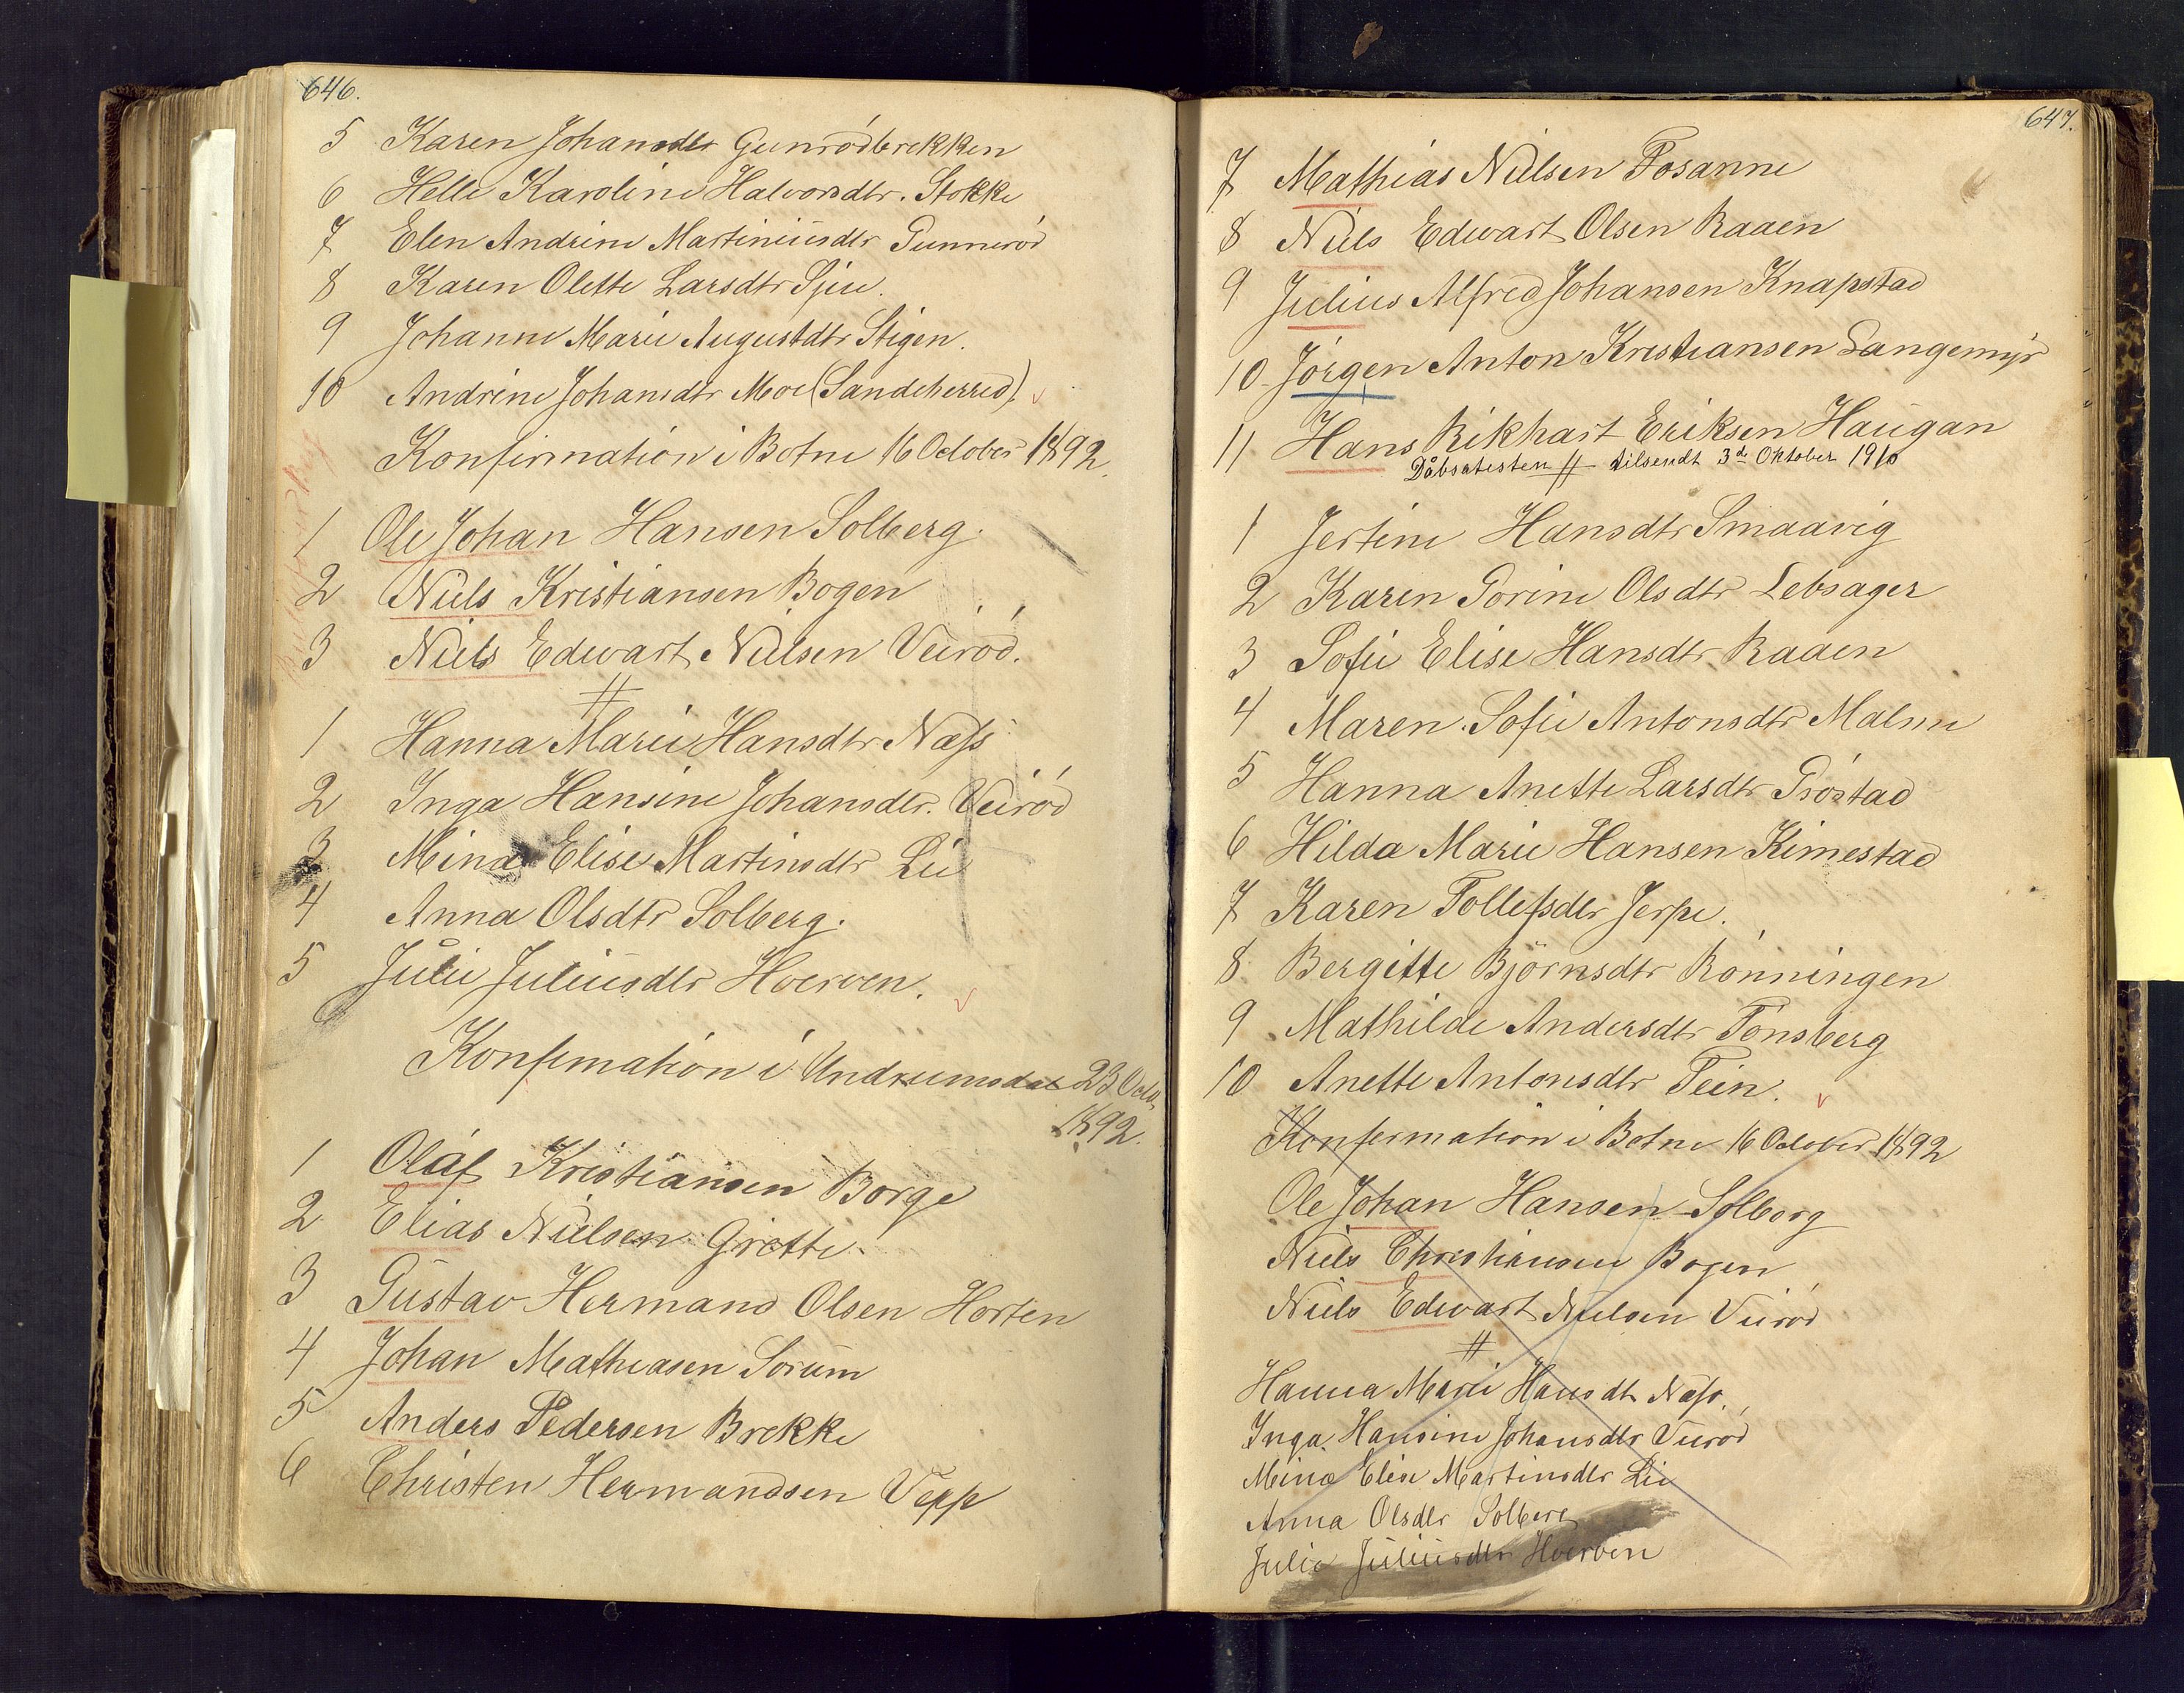 646.
5 Karen Johansdtr Gunrödbrekken
6 Helle Karoline Halvorsdtr. Stokke
7 Elen Andrine Martiniusdtr Gunneröd
8 Karen Olette Larsdtr Sjue.
9 Johanne Marie Augustdtr Stigen.
10 Andrine Johansdtr Moe (Sandeherred).
Konfirmation i Botne 16 October 1892.
1 Ole Johan Hansen Solberg.
2 Niels Kristiansen Bogen
3 Niels Edwart Nielsen Veiröd.
//
1 Hanna Marie Hansdtr Næss
2 Inga Hansine Johansdtr. Veiröd
3 Mina Elise Martinsdtr Lie
4 Anna Olsdtr Solberg.
5 Julie Juliusdtr Hvorven.
Konfimation i Undrumsdal 23 Octo.
1892.
1 Olaf Kristiansen Borge
2 Elias Nielsen Grette
3 Gustav Hermans Olsen Horten
4 Johan Mathiasen Sorum
5 Anders Pedersen Brekke
6 Christen Hermandsen Vepp
647.
7 Mathias Nielsen Fosanne
8 Niels Edwart Olsen Raaen
9 Julius Alfred Johansen Knapstad
10 Jörgen Anton Kristiansen Langemyr
11 Hans Rikhart Eriksen Haugan
Dåbsatesten // tilsendt 3de Oktober 1910
1 Jertine Hansdtr Smaavig
2 Karen Torine Olsdtr Lebsager
3 Sofie Elise Hansdtr Raaen
4 Maren Sofie Antonsdtr Malme
5 Hanna Anette Larsdtr Pröstad
6 Hilda Marie Hansen Kimestad
7 Karen Tollefsdtr Jerpe.
8 Bergitte Björnsdtr Rönningen
9 Mathilde Andersdtr Tönsberg
10 Anette Antonsdtr Tein.
Konfermation i Botne 16 October 1892
Ole Johan Hansen Solborg
Niels Christiansen Bogen
Niels Edwart Nielsen Veiröd
//
Hanna Marie Hansdt Næss.
Inga Hansine Johansdtr Veiröd
Mina Elise Martinsdtr Lie
Anna Olsdtr Solberg
Julie Juliusdtr Hvorven